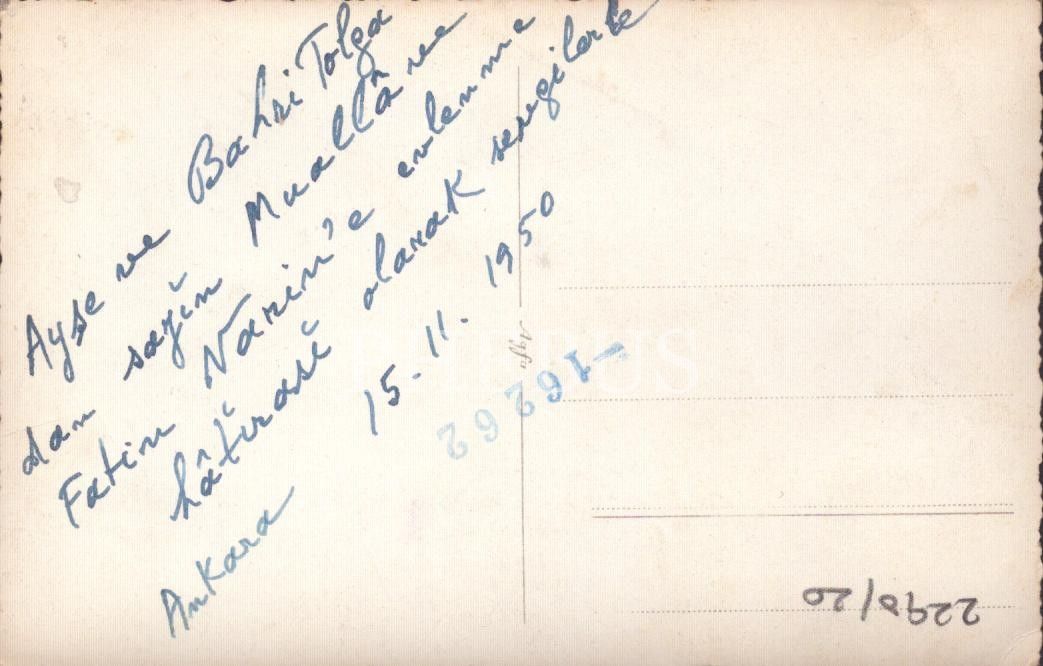 Ayşe ve Bahri Tolga
dan sayın Muallâ ve
Fatin Narin'e evlenme
hâtırası olarak sevgilerle
15.11.1950
Ankara
Agfa
-162262
2290/20